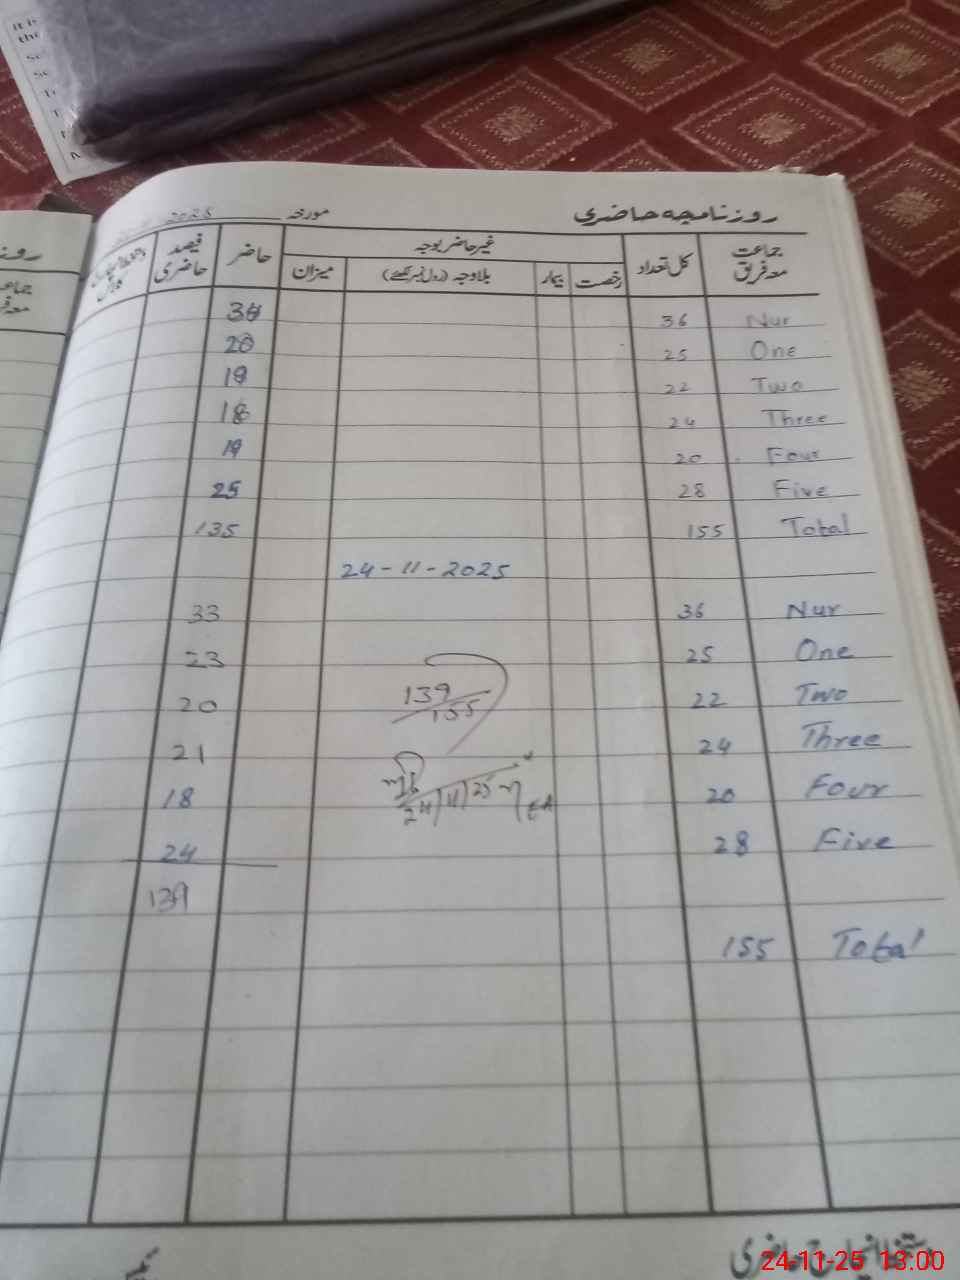 روزنامچہ حاضری مورخہ 2025
جماعت معہ فریق کل تعداد غیر حاضر بوجہ حاضر فیصد حاضری
رخصت بیمار بلاوجہ (رول نمبر لکھئے) میزان
Nur 36 34
One 25 20
Two 22 19
Three 24 18
Four 20 19
Five 28 25
Total 155 135
24-11-2025
Nur 36 33
One 25 23
Two 22 139/155 20
Three 24 21
Four 20 24/11/25 18
Five 28 24
139
Total 155
حاضری
24-11-25 13:00